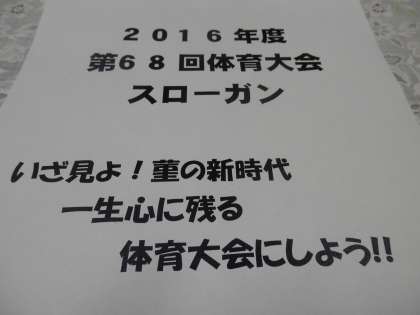 ２０１６年度
第６８回体育大会
スローガン
いざ見よ！菫の新時代
一生心に残る
体育大会にしよう!!